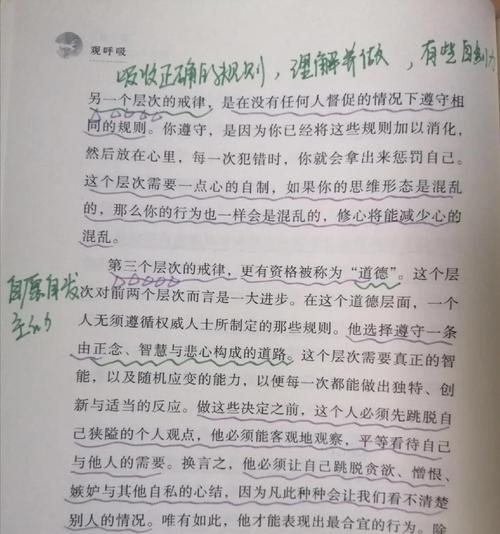 观呼吸
吸收正确的规则，理解并做，有些自制力
另一个层次的戒律，是在没有任何人督促的情况下遵守相
同的规则。你遵守，是因为你已经将这些规则加以消化，
然后放在心里，每一次犯错时，你就会拿出来惩罚自己。
这个层次需要一点心的自制，如果你的思维形态是混乱
的，那么你的行为也一样会是混乱的，修心将能减少心的
混乱。
第三个层次的戒律，更有资格被称为“道德”。这个层
自愿自发
主动的
次对前两个层次而言是一大进步。在这个道德层面，一个
人无须遵循权威人士所制定的那些规则。他选择遵守一条
由正念、智慧与悲心构成的道路。这个层次需要真正的智
能，以及随机应变的能力，以便每一次都能做出独特、创
新与适当的反应。做这些决定之前，这个人必须先跳脱自
己狭隘的个人观点，他必须能客观地观察，平等看待自己
与他人的需要。换言之，他必须让自己跳脱贪欲、憎恨、
嫉妒与其他自私的心结，因为凡此种种会让我们看不清楚
别人的情况。唯有如此，他才能表现出最合宜的行为。除